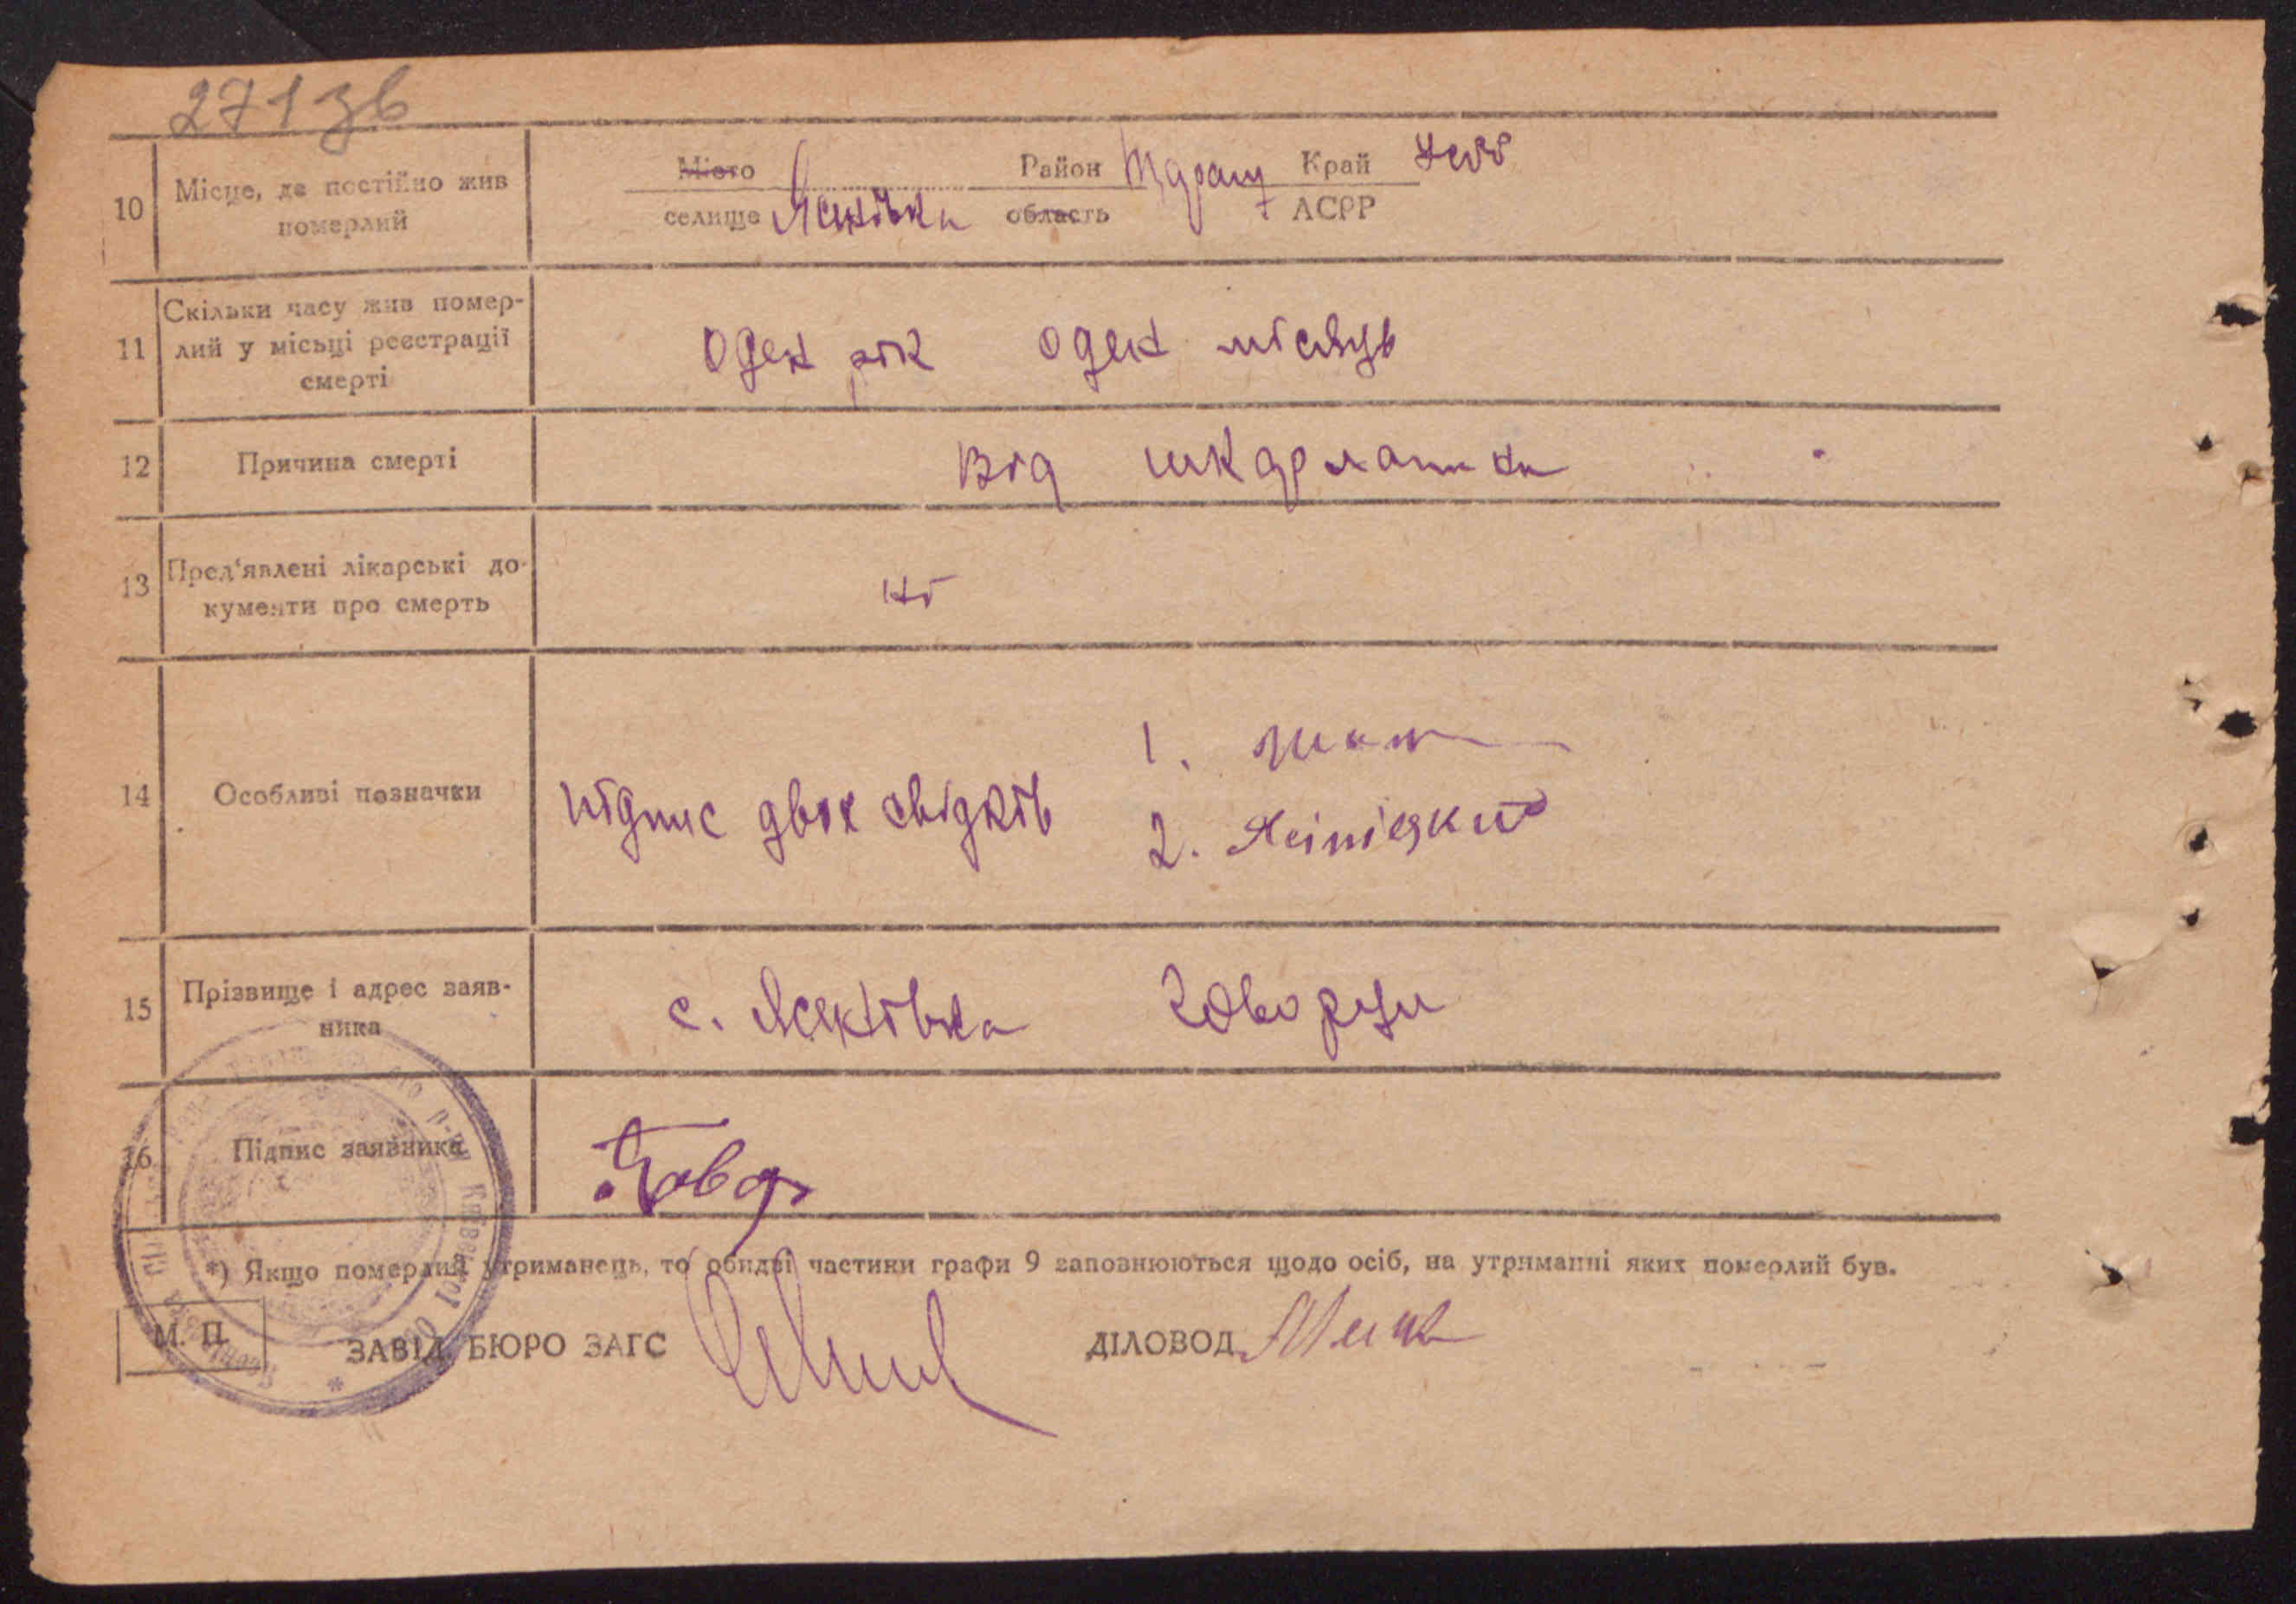 271 зв
10 Місце, де постійно жив померлий
Місто
селище Ясенівка
Район
область
Край
АСРР УСРР
11 Скільки часу жив помер-
лий у місьці реєстрації
смерті
Оден рік оден місяць
12 Причина смерті
Від шкарлатини
13 Пред'явлені лікарські до-
кументи про смерть
ні
14 Особливі позначки
підпис двох свідків
1.
2.
15 Прізвище і адрес заяв-
ника
с. Ясенівка
16 Підпис заявника
*) Якщо померлий утриманець, то обидві частини графи 9 заповнюються щодо осіб, на утриманні яких померлий був.
М. П.
ЗАВІД. БЮРО ЗАГС
ДІЛОВОД
р-ну Київської